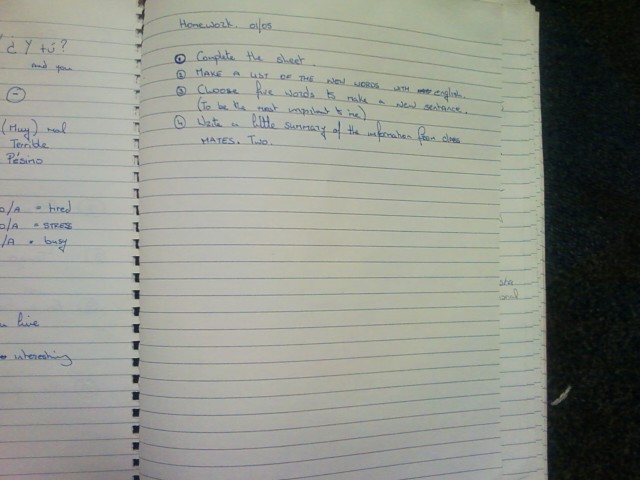 ¿ Y tú?
and you
(Muy) mal
Terrible
Pésimo
O/A = tired
O/A = STRESS
/A = busy
live
interesting
Homework. 01/05
① Complete the sheet.
② MAKE A LIST OF THE NEW WORDS WITH english.
③ Choose five words to make a new sentence.
(To be the most important to me)
④ Write a little summary of the information from class
MATES. Two.